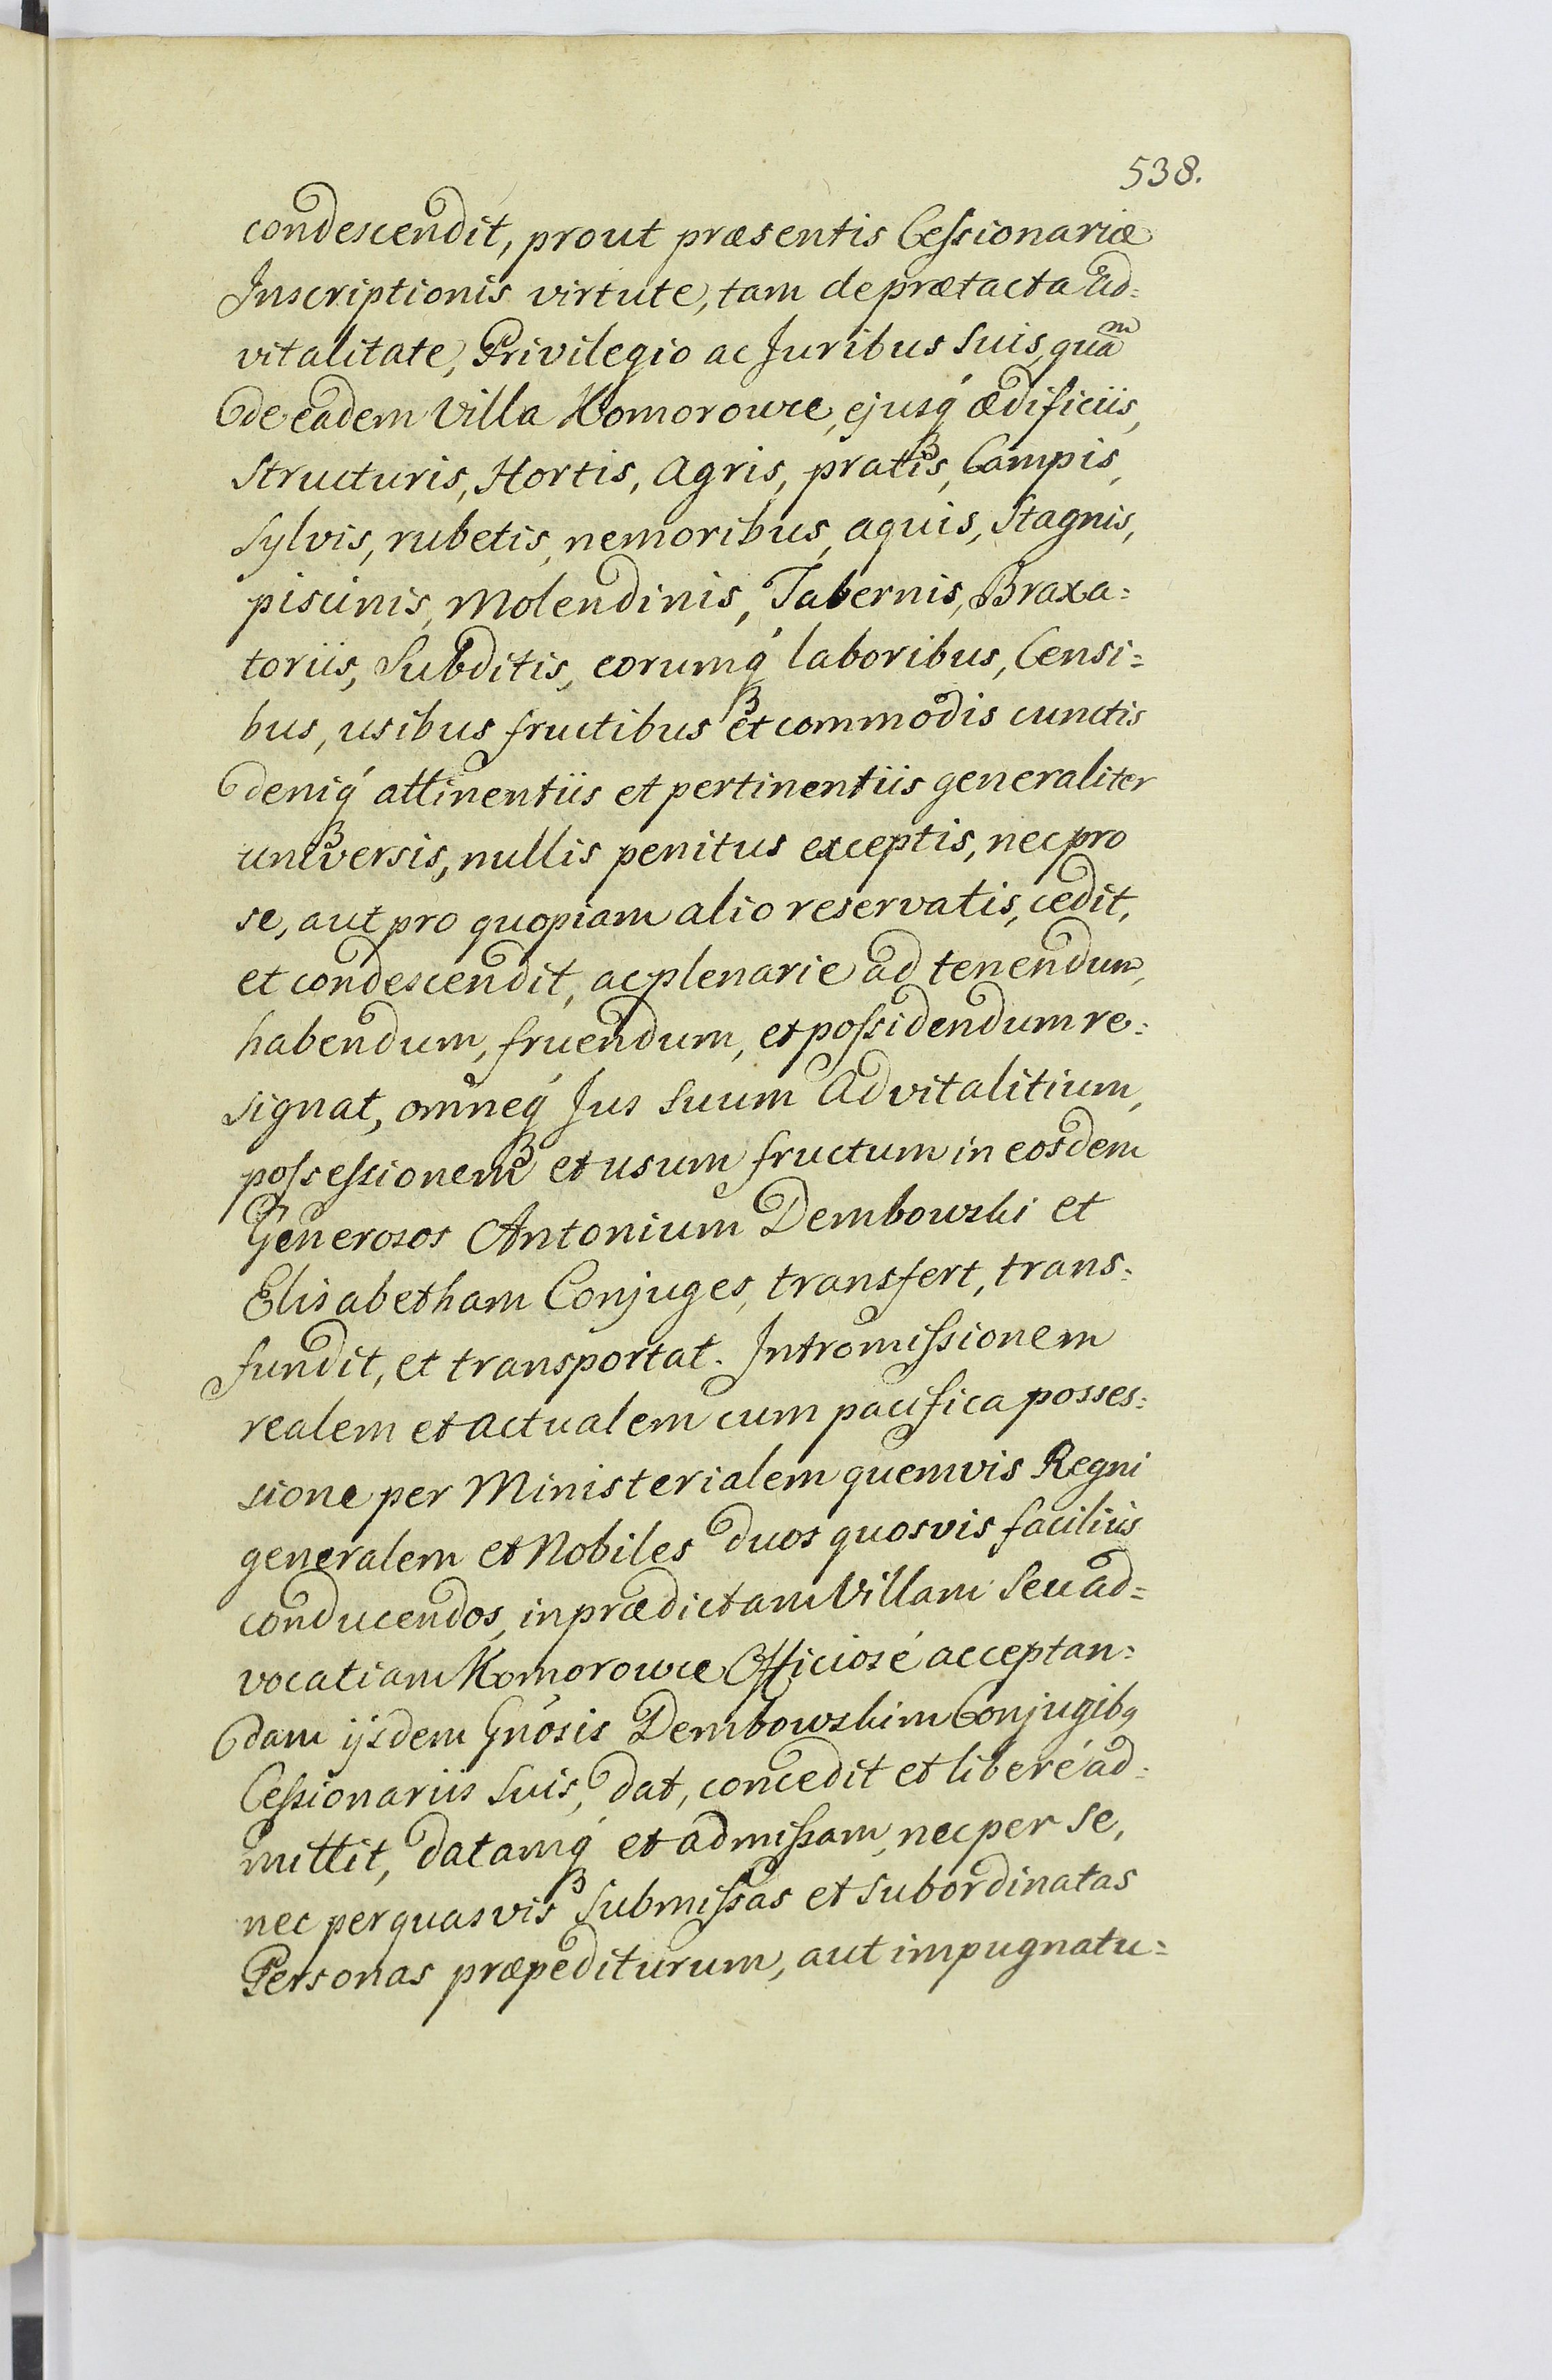 538.
condescendit, prout præsentis Ceſsionariæ
Inscriptionis virtute, tam de prætacta Ad=
vitalitate, Privilegio ac Juribus Suis, quam
de eadem Villa Komorowce, ejusq́ ædificiis,
Structuris, Hortis, Agris, pratis, Campis,
Sylvis, rubetis, nemoribus, aquis, Stagnis,
piscinis, Molendinis, Tabernis, Braxa=
toriis, Subditis, eorumq́ laboribus, Censi=
bus, usibus fructibus et commodis cunctis
deniq́ attinentiis et pertinentiis generaliter
universis, nullis penitus exceptis, nec pro
se, aut pro quopiam alio reservatis, cedit,
et condescendit, ac plenarie ad tenendum,
habendum, fruendum, et poſsidendum re=
signat, omneq́ Jus Suum Advitalitium,
poſseſsionem et usum fructum in eosdem
Generosos Antonium Dembowski et
Elisabetham Conjuges, transfert, trans=
fundit, et transportat. Intromiſsionem
realem et actualem cum pacifica posses=
sione per Ministerialem quemvis Regni
generalem et Nobiles duos quosvis faciliús
conducendos, in prædictam Villam Seu ad=
vocatiam Komorowce Officiosé acceptan=
dam ijsdem Gnósis Dembowskim Conjugibq
Ceſsionariis Suis, dat, concedit et liberé ad=
mittit, datamq́ et admiſsam, nec per se,
nec per quasvis Submiſsas et Subordinatas
Personas præpediturum, aut impugnatu=